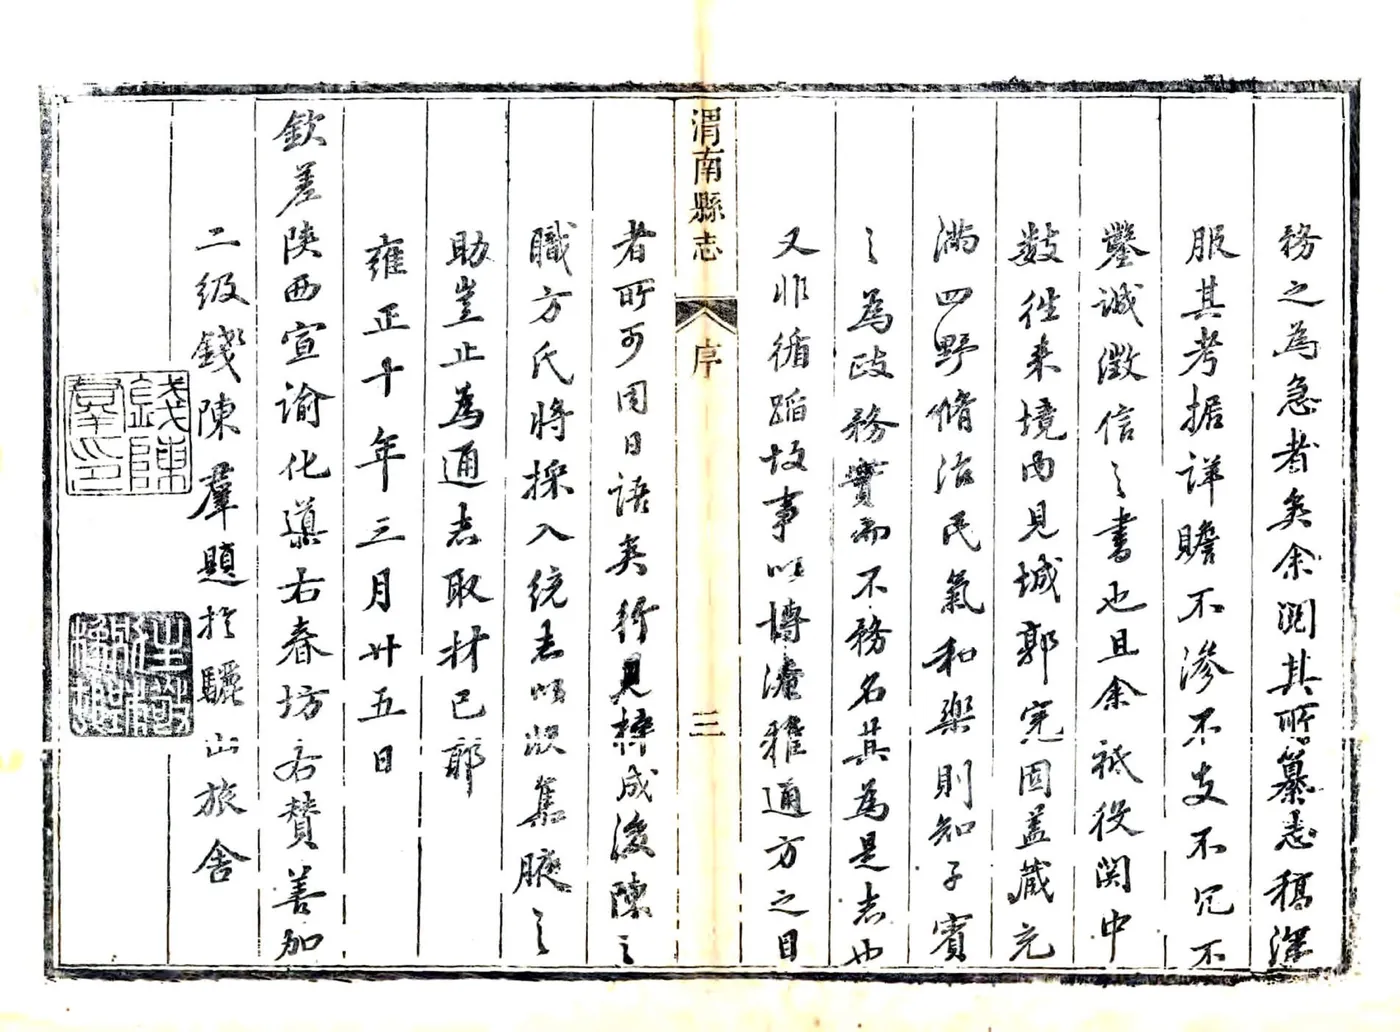 務之為急者矣余閱其所纂志稿深
服其考据詳贍不滲不支不冗不
鑿誠徵信之書也且余祗役関中
数徃来境內見城郭完固葢藏充
滿四野脩治民氣和樂則知子賓
之為政務實而不務名其為是志也
又非循蹈故事以博淹雅通方之目
渭南縣志
序
三
者所可同日語矣行見梓成後陳之
職方氏將採入統志以收集腋之
助豈止為通志取材已耶
雍正十年三月廿五日
欽差陝西宣諭化導右春坊右贊善加
二級錢陳羣題於驪山旅舍
錢陳
羣印